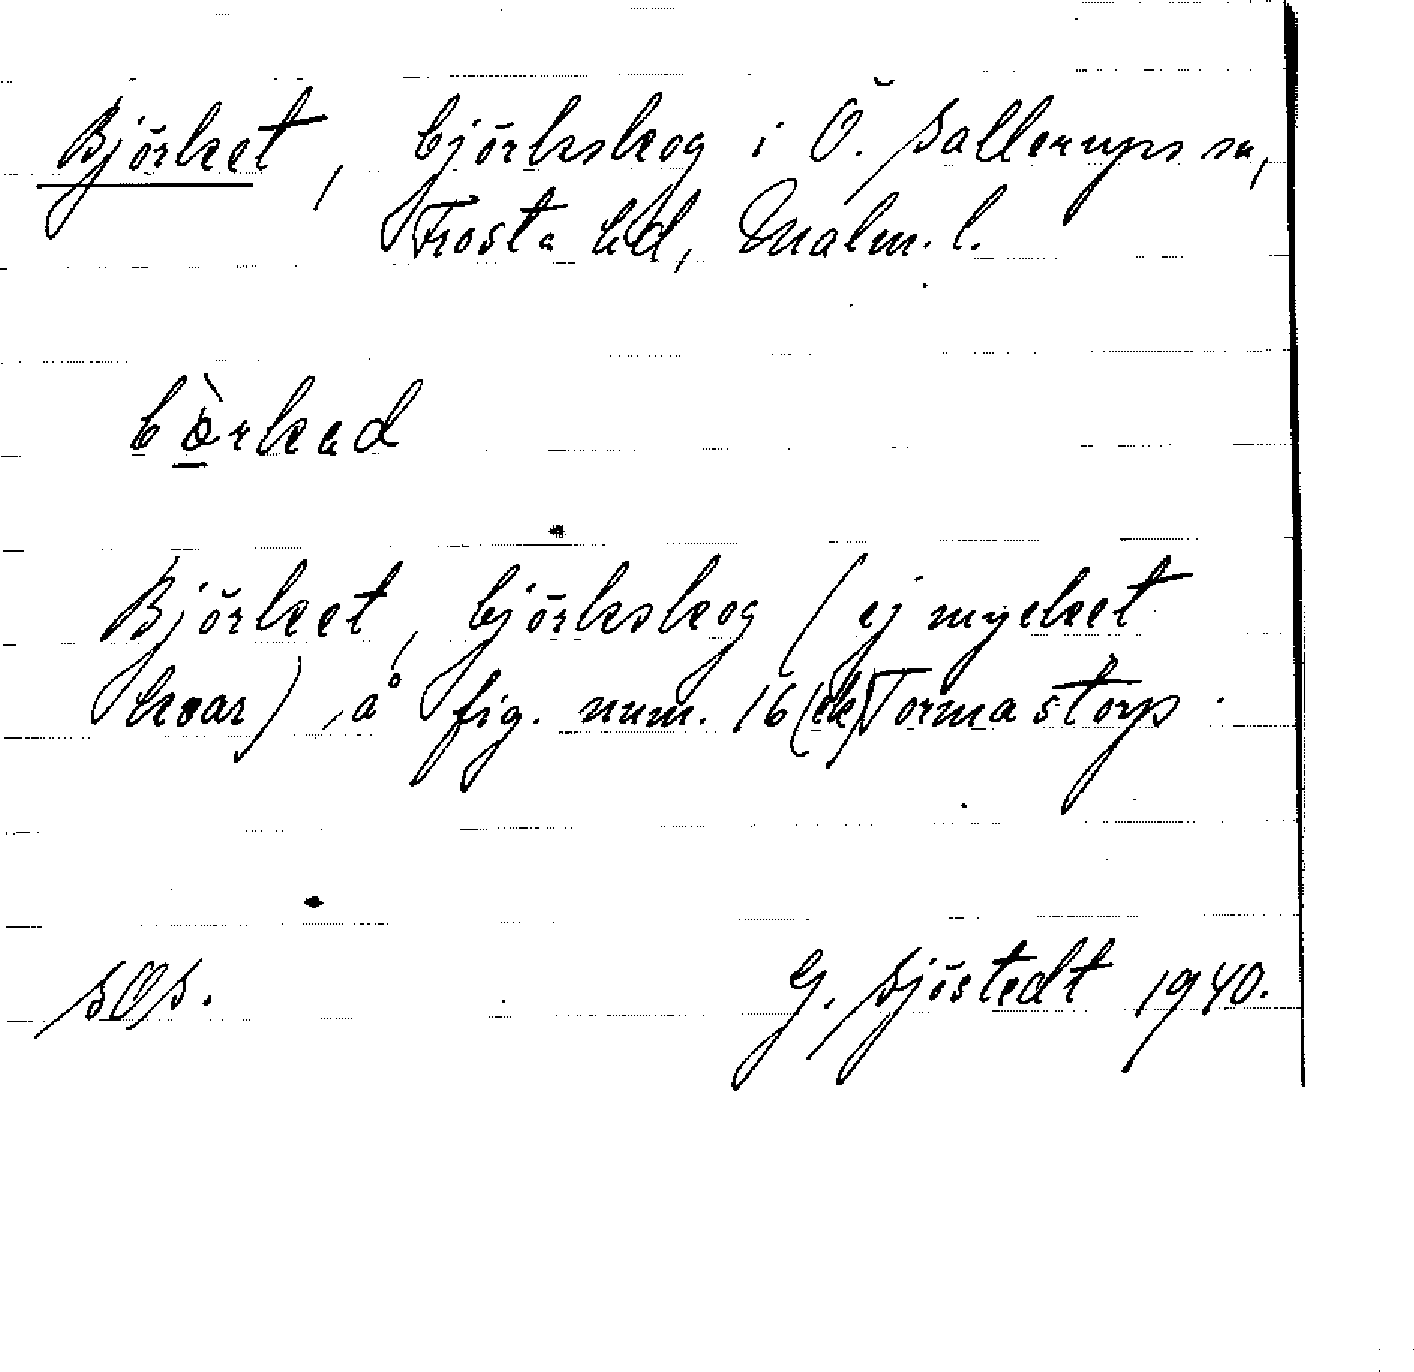 Björket, björkskog i Ö. Sallerups sn,
Frosta hd, Malm. l.
Björket, björkskog (ej mycket
kvar) å fig. num. 16 (ek) Tormastorp.
SOS.
G. Sjöstedt 1940.